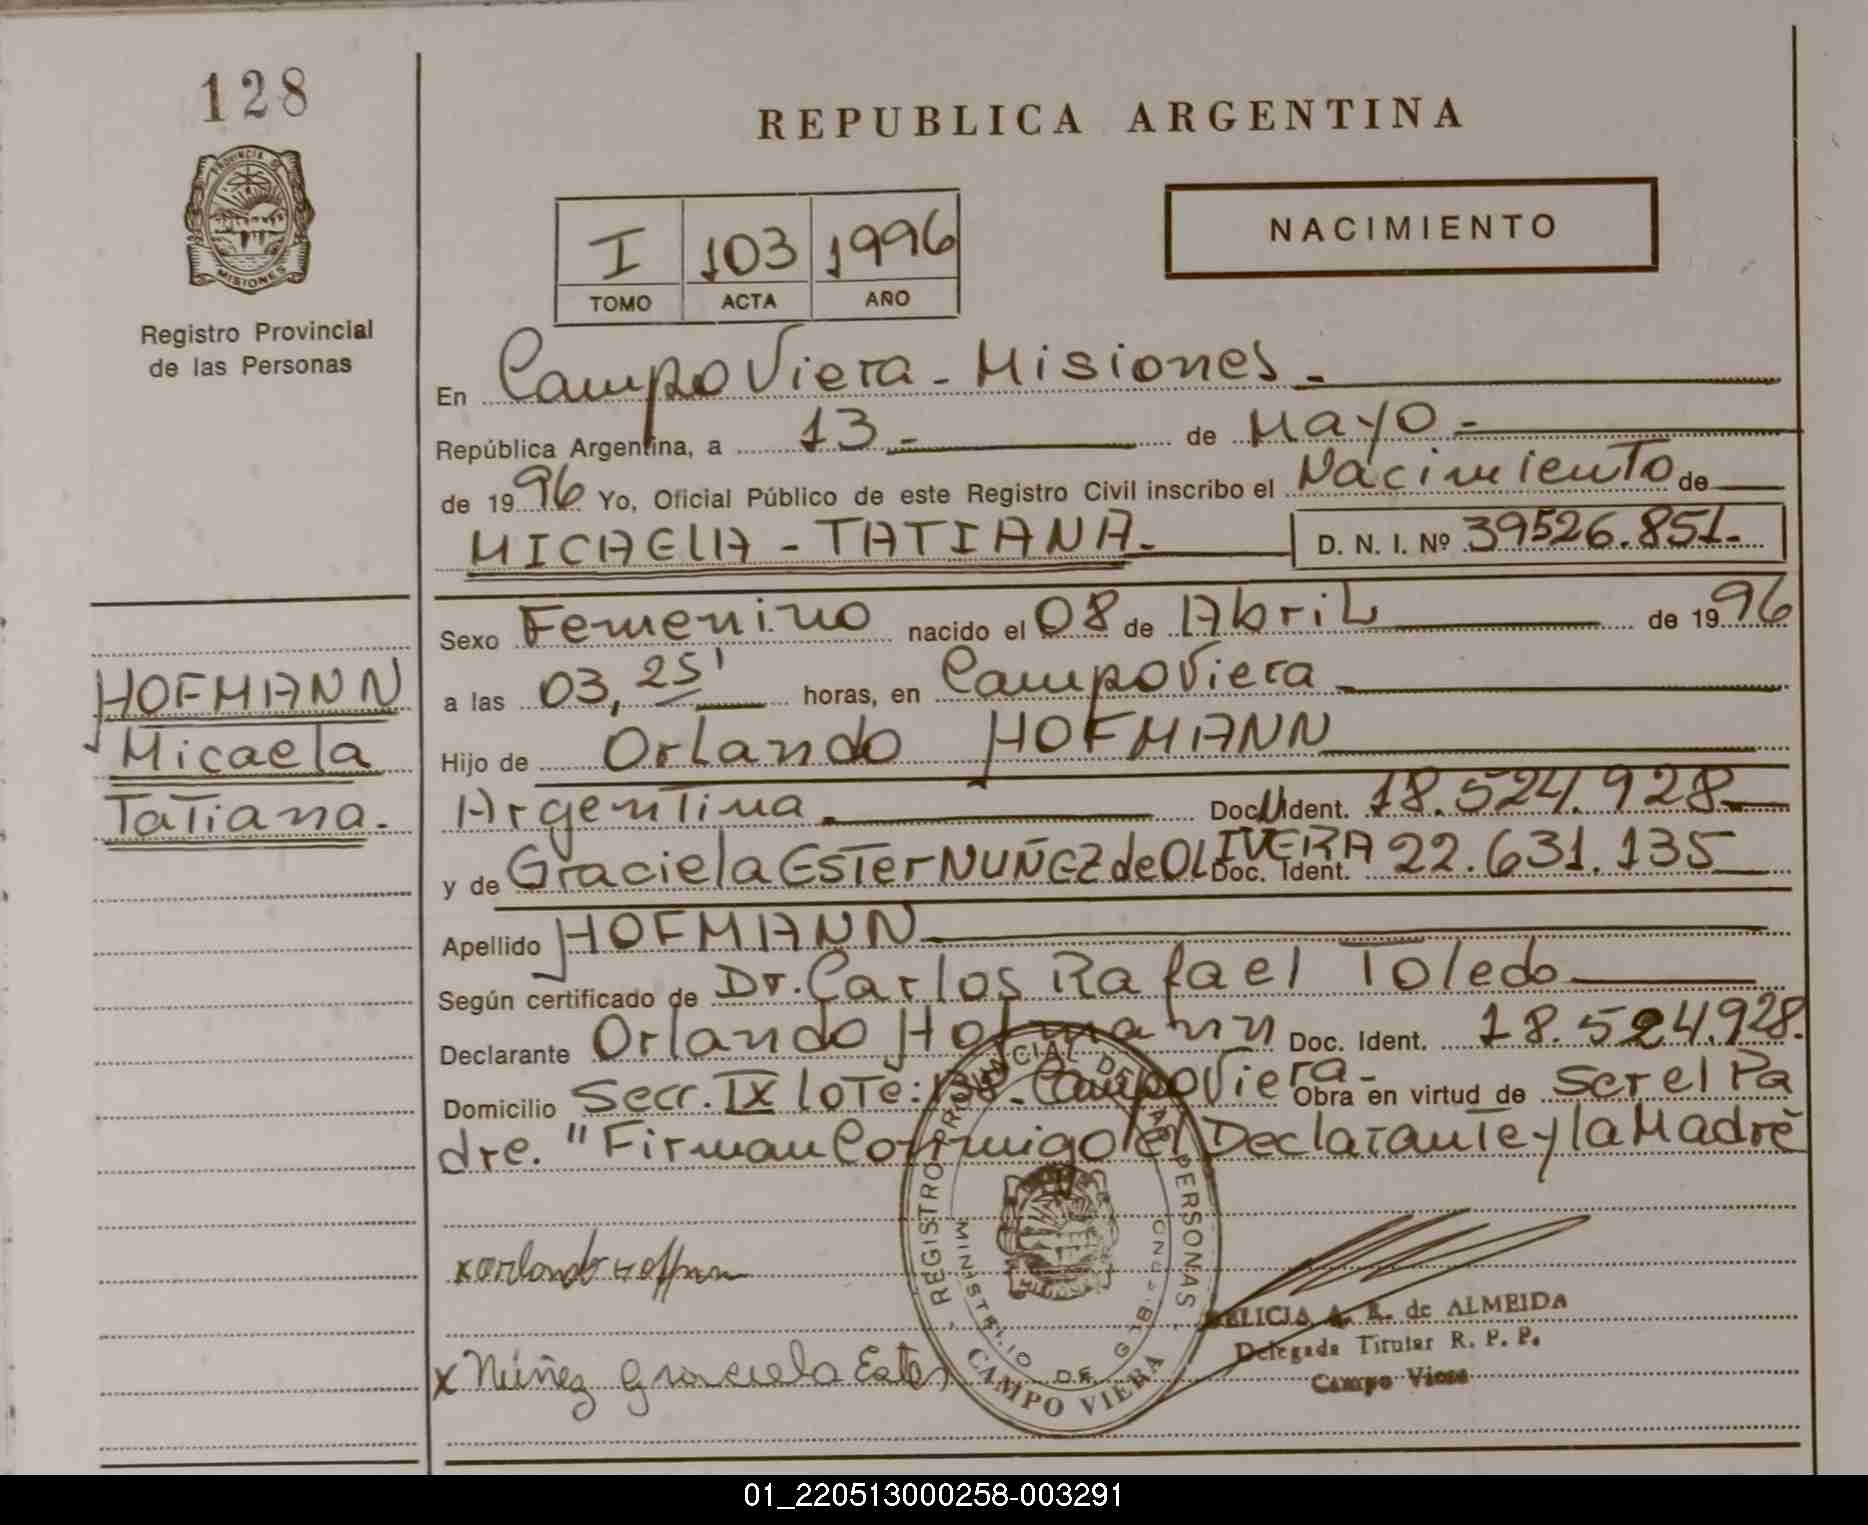 128
PROVINCIA DE
MISIONES
Registro Provincial
de las Personas
HOFMANN
Micaela
Tatiana.
REPUBLICA ARGENTINA
I 103 1996
TOMO ACTA AÑO
NACIMIENTO
En Campo Viera - Misiones -
República Argentina, a 13 - de Mayo -
de 1996 Yo, Oficial Público de este Registro Civil inscribo el Nacimiento de
MICAELA - TATIANA. D. N. I. Nº 39526.851.
Sexo Femenino nacido el 08 de Abril de 1996
a las 03,25' horas, en Campo Viera
Hijo de Orlando HOFMANN
Argentina Doc. Ident. 18.524.928
y de Graciela Ester NUÑEZ de OLIVERA Doc. Ident. 22.631.135
Apellido HOFMANN
Según certificado de Dr. Carlos Rafael Toledo
Declarante Orlando Hofmann Doc. Ident. 18.524.928.
Domicilio Secc. IX Lote: Campo Viera - Obra en virtud de Ser el Pa
dre. "Firman Conmigo el Declarante y la Madre
REGISTRO PROVINCIAL DE LAS PERSONAS
MINISTERIO DE GOBIERNO
CAMPO VIERA
x Orlando Hofman
x Núñez Graciela Ester
A. R. de ALMEIDA
Delegada Titular R. P. P.
Campo Viera
01_220513000258-003291